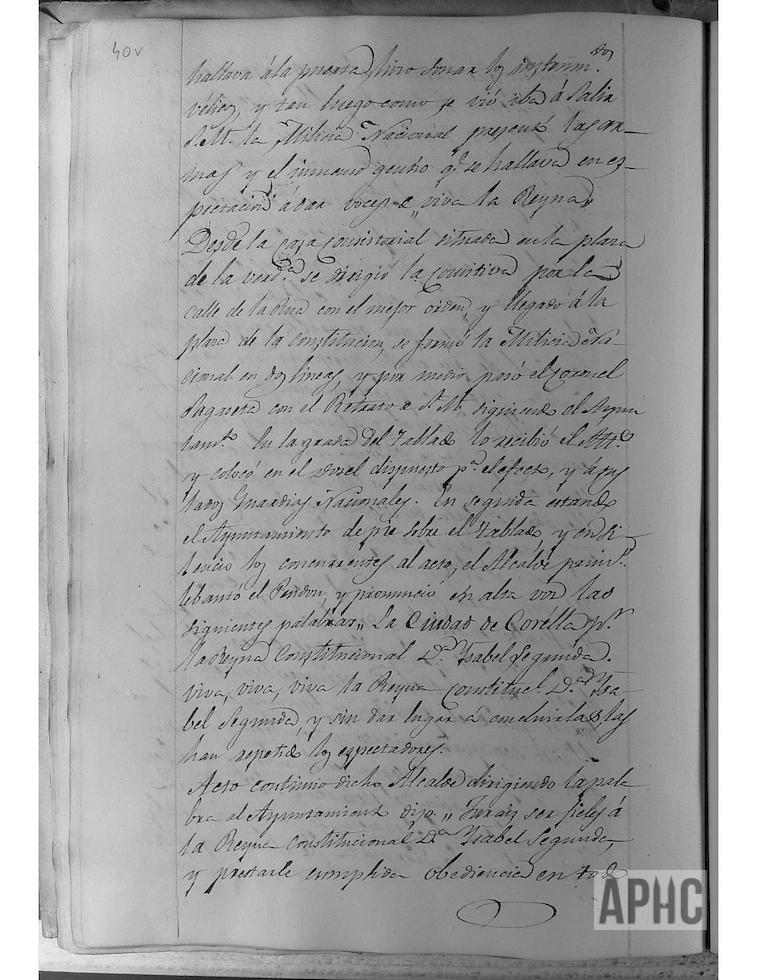 40v
hallava á la puerta, hizo sonar los instrum.tos
vélicos, y tan luego como se vió iba á Salir
S.M. la Milicia Nacional presentó las ar-
mas y el inmenso gentio q.e se hallava en es-
pectacion á dar voces de „ viva la Reyna„
Desde la Casa Consistorial situada en la plaza
de la verd.a se dirigió la Comitiva por la
calle de la Rua con el mejor orden, y llegado á la
plaza de la Constitucion, se formó la Milicia Na-
cional en dos lineas, y por medio pasó el Coronel
Sagaseta con el Retrato de S.M. siguiendo el Ayun
tam.to En la grada del Tablado lo recibió el Alc.e
y colocó en el Dosel dispuesto p.a el efecto, y á sus
lados Guardias Nacionales. En seguida estando
el Ayuntamiento de pie sobre el Tablado y en si-
lencio los concurrentes al acto, el Alcalde prim.o
lebantó el Pendon, y pronunció en alta voz las
siguientes palabras „ La Ciudad de Corélla p.r
la Reyna Constitucional D.a Ysabel Segunda.
viva, viva, viva la Reyna Constitucl. D.a Ysa-
bel Segunda y sin dar lugar á concluirlas, las
han repetido los espectadores.
Acto continuo dicho Alcalde dirigiendo la pala
bra al Ayuntamiento dijo „ Jurais ser fieles á
la Reyna Constitucional D.a Ysabel Segunda,
y prestarle cumplida obediencia en todo
APHC